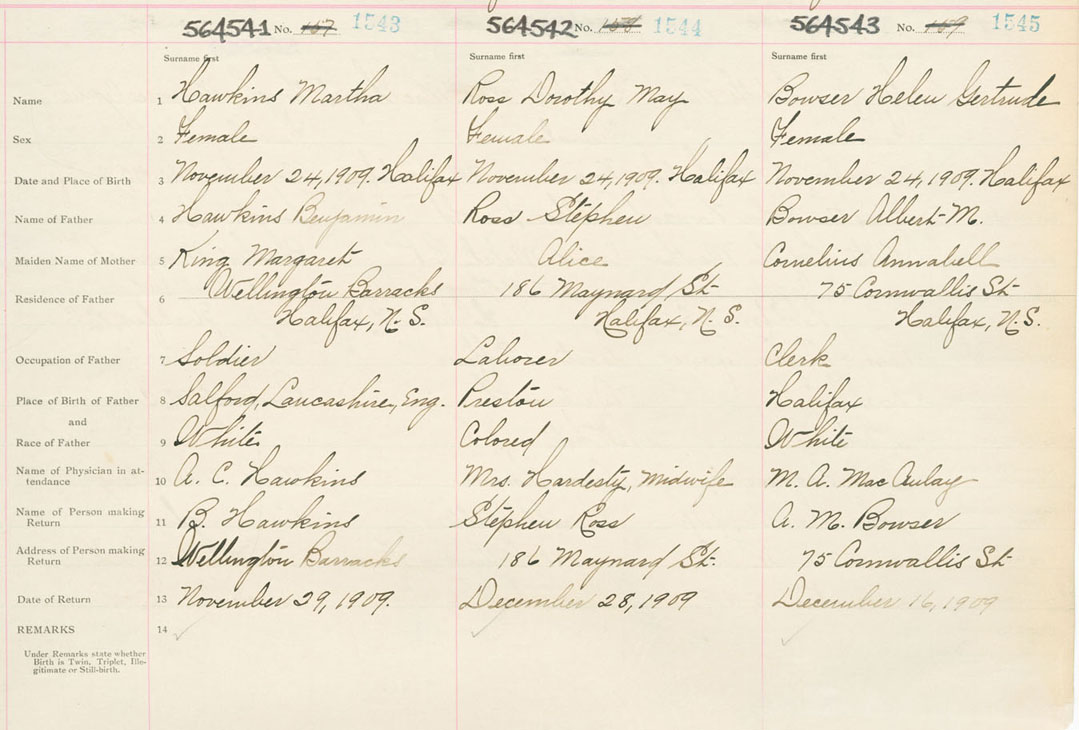 564541 No. 157 1543 564542 No. 158 1544 564543 No. 159 1545
Surname first Surname first Surname first
Name 1 Hawkins Martha Ross Dorothy May Bowser Helen Gertrude
Sex 2 Female Female Female
Date and Place of Birth 3 November 24, 1909. Halifax November 24, 1909. Halifax November 24, 1909. Halifax
Name of Father 4 Hawkins Benjamin Ross Stephen Bowser Albert M.
Maiden Name of Mother 5 King Margaret Alice Cornelius Annabell
Residence of Father 6 Wellington Barracks 186 Maynard St. 75 Cornwallis St.
Halifax, N.S. Halifax, N.S. Halifax, N.S.
Occupation of Father 7 Soldier Laborer Clerk
Place of Birth of Father 8 Salford, Lancashire, Eng. Preston Halifax
and
Race of Father 9 White Colored White
Name of Physician in at-
tendance 10 A. C. Hawkins Mrs. Hardesty, Midwife M. A. MacAulay
Name of Person making
Return 11 B. Hawkins Stephen Ross A. M. Bowser
Address of Person making
Return 12 Wellington Barracks 186 Maynard St. 75 Cornwallis St.
Date of Return 13 November 29, 1909. December 28, 1909 December 16, 1909
REMARKS 14
Under Remarks state whether
Birth is Twin, Triplet, Ille-
gitimate or Still-birth.